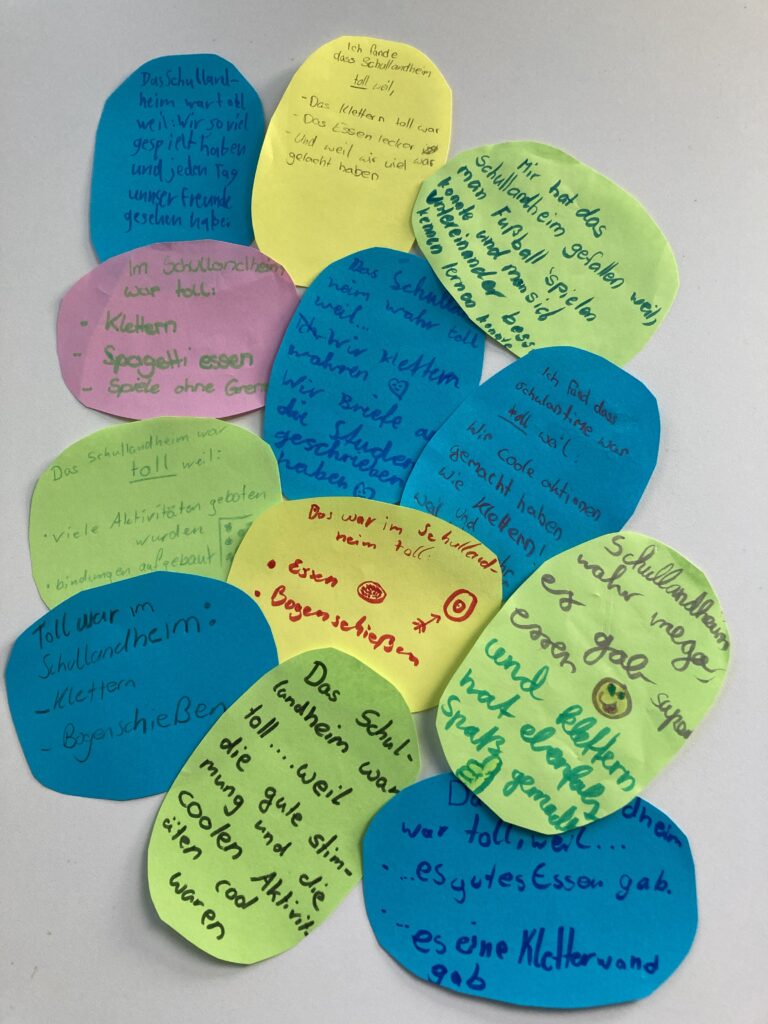 Das Schulland-
heim war toll
weil: Wir so viel
gespielt haben
und jeden Tag
unnser Freunde
gesehen haben
Ich fande
dass Schullandheim
toll weil,
- Das Klettern toll war
- Das Essen lecker war
- Und weil wir viel
gelacht haben
Mir hat das
Schullandheim gefallen weil,
man Fußball spielen
konnte und man sich
untereinander bess
kennen lernen konnte
Im Schullandheim
war toll:
• Klettern
- Spagetti essen
- Spiele ohne Gren
Das Schull
heim wahr toll
weil...
Wir klettern
wahren
Wir Briefe a
die Studen
geschrieben
haben
Ich fand dass
war
toll weil:
Wir coole aktionen
gemacht haben
wie Klettern!
weil und
Das Schullandheim war
toll weil:
• viele Aktivitäten geboten
wurden
• bindungen aufgebaut
Das war im Schulland-
heim toll:
• Essen
• Bogenschießen
Schullandheim
wahr mega,
es gab super
essen
und klettern
hat ebenfals
Spaß gemacht
Toll war im
Schullandheim:
- Klettern
- Bogenschießen
Das Schul-
landheim war
toll....weil
die gute stim-
mung und die
coolen Aktivit-
äten cool
waren
Da dheim
war toll, weil...
• ...es gutes Essen gab.
• ...es eine Kletterwand
gab